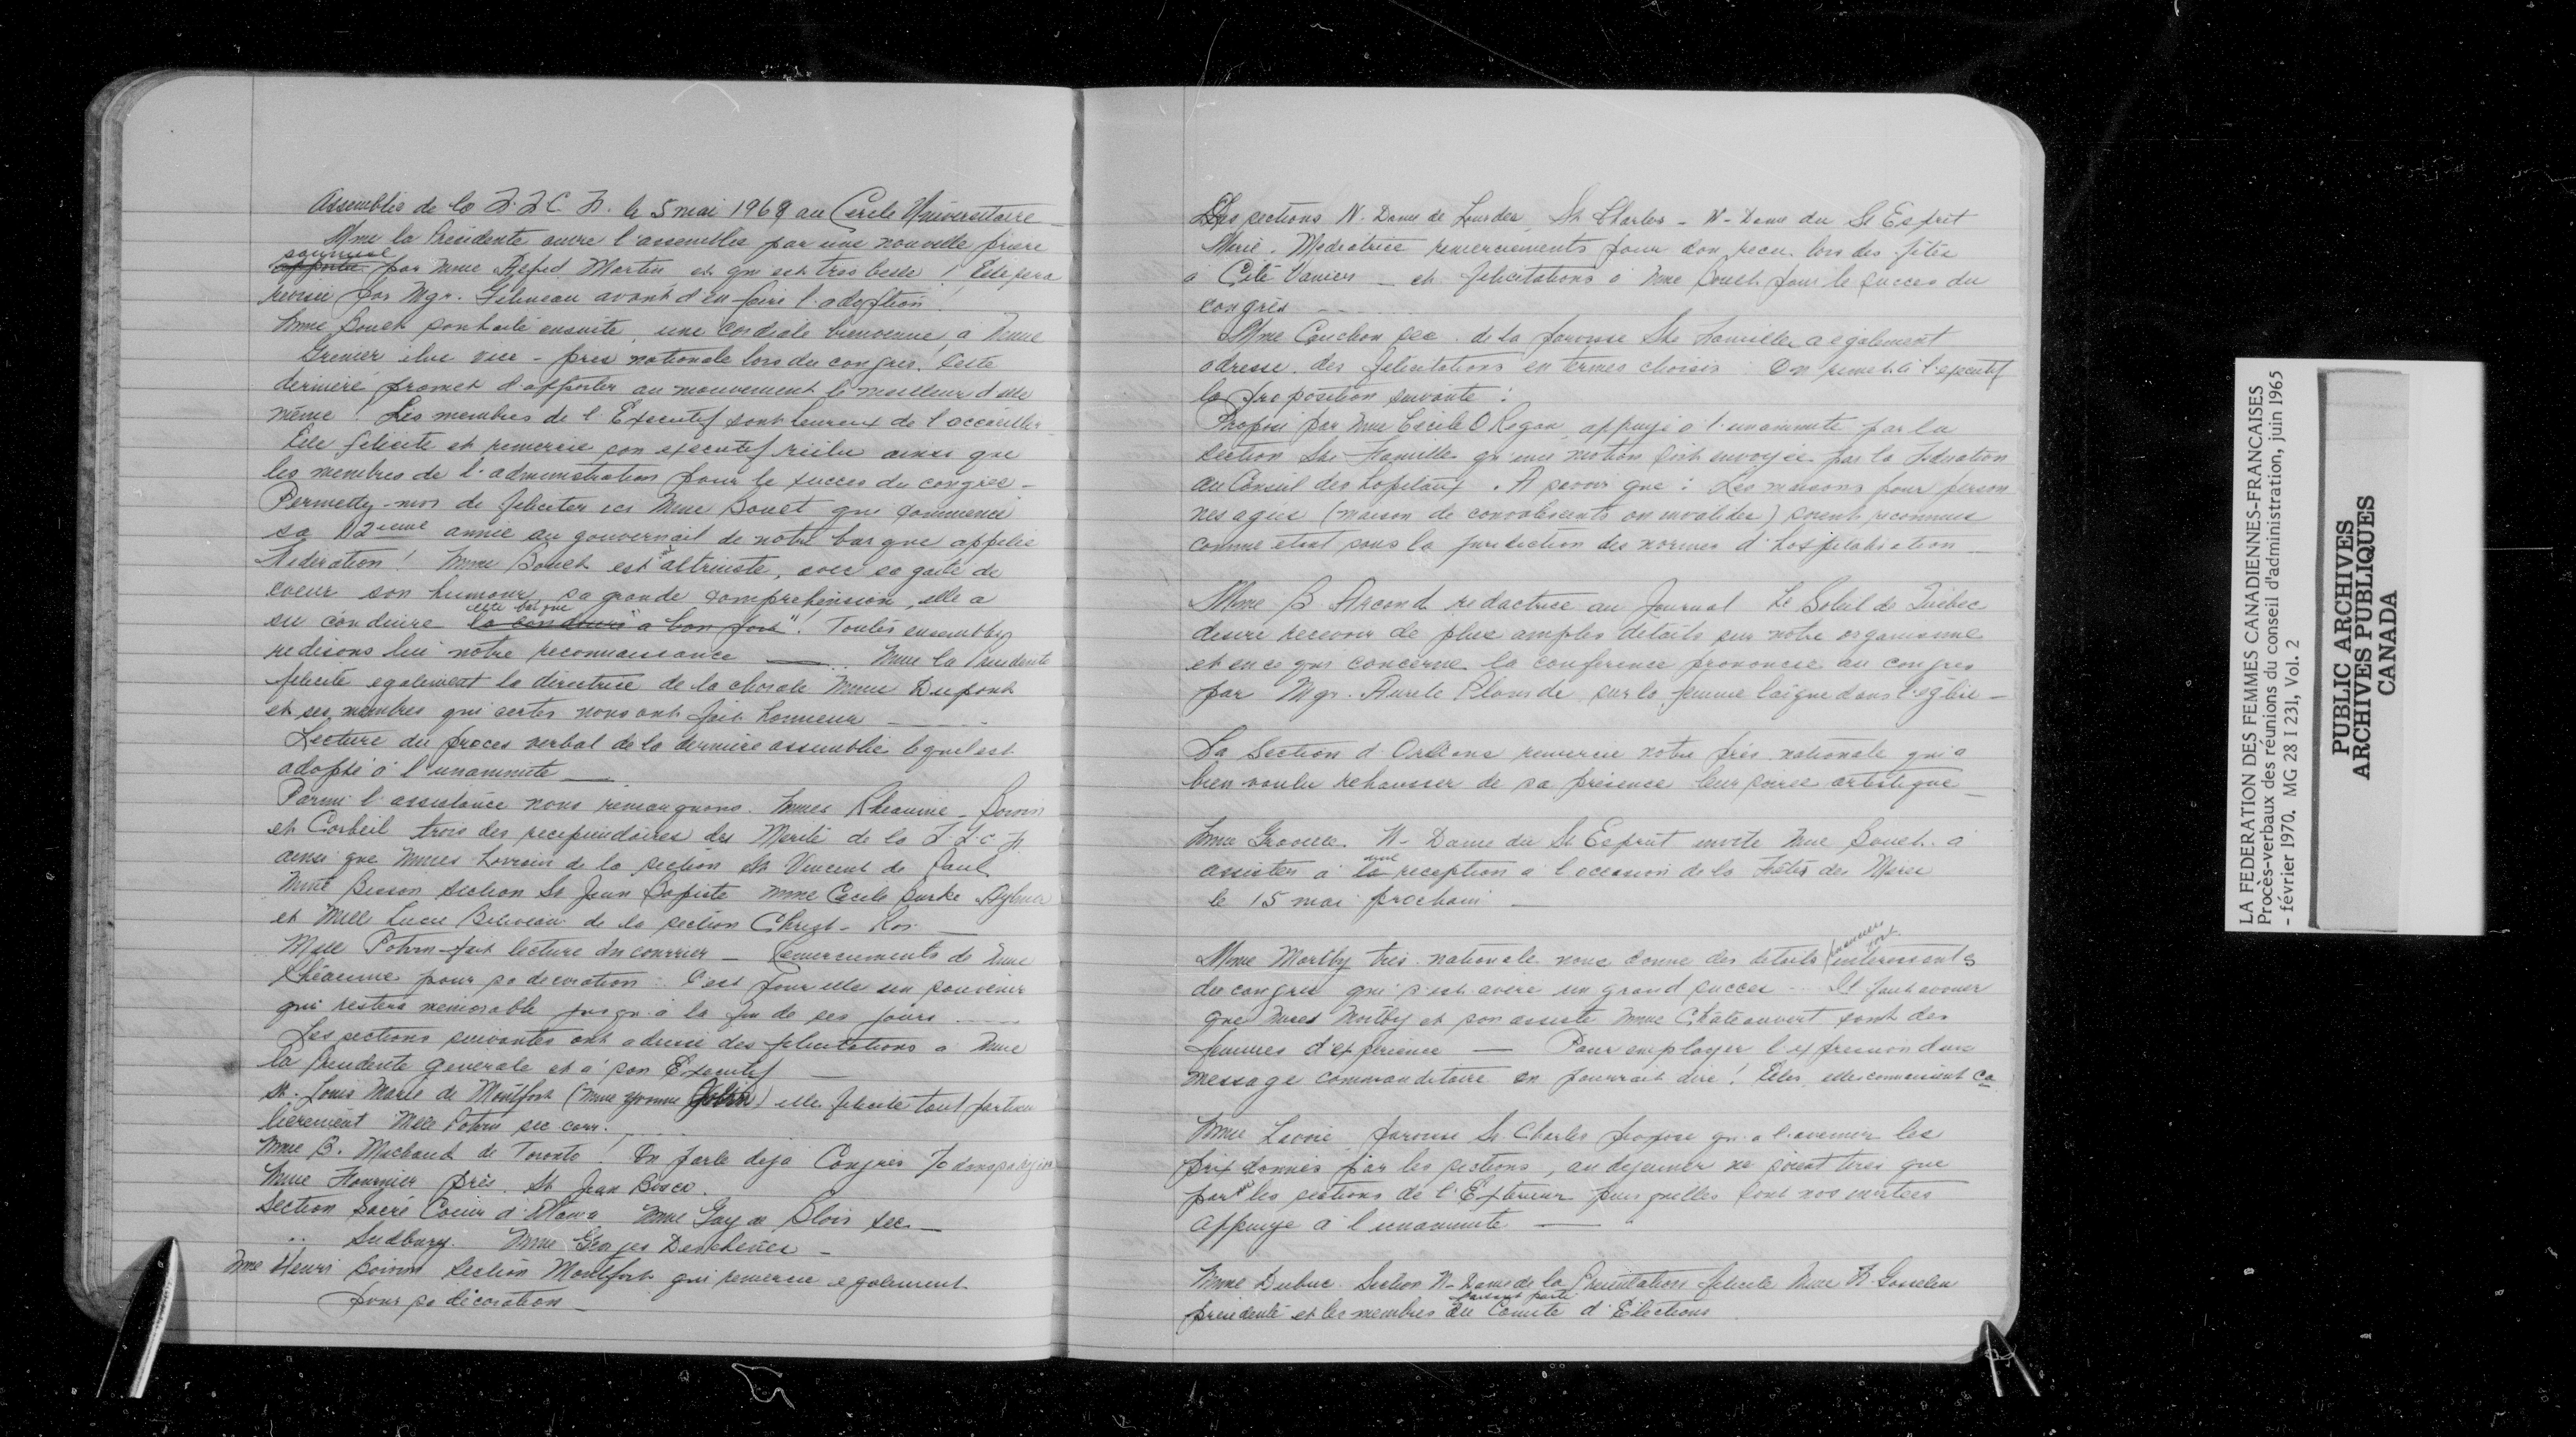 Assemblée de la F.F.C.F. le 5 mai 1968 au Cercle Universitaire
Mme la Présidente ouvre l'assemblée par une nouvelle prière
soumise
apportée par Mme Alfred Martin et qui est très belle ! Elle sera
révisée par Mgr. Gélineau avant d'en faire l'adoption !
Mme Bouch souhaite ensuite, une cordiale bienvenue, à Mme
Grenier élue vice-prés nationale lors du congrès. Cette
dernière promet d'apporter au mouvement le meilleur d'elle
même ! Les membres de l'Exécutif sont heureux de l'accueillir
Elle félicite et remercie son exécutif réélu ainsi que
les membres de l'administration pour le succès du congrès -
Permettez-moi de féliciter ici Mme Bouet qui commence
sa 12ième année au gouvernail de notre barque appelée
Fédération ! Mme Bouet est altruiste, avec sa gaîté de
coeur son humour, sa grande compréhension, elle a
cette barque
su conduire la conduire "à bon port". Toutes ensembles
redisons lui notre reconnaissance — Mme la Présidente
félicite également la directrice de la chorale Mme Dupont
et ses membres qui certes nous ont fait honneur —
Lecture du procès verbal de la dernière assemblée lequel est
adopté à l'unanimité —
Parmi l'assistance nous remarquons. Mmes Rhéaume - Boivin
et Corbeil trois des récipiendaires du Mérite de la F.F.C.F.
ainsi que Mmes Lorrain de la section St Vincent de Paul
Mme Besson section St Jean Baptiste Mme Cécile Burke Aylmer
et Melle Lucie Béliveau de la section Christ-Roi —
Melle Potvin fait lecture du courrier — Remerciements de Mme
Rhéaume pour sa décoration : C'est pour elle un souvenir
qui restera mémorable jusqu'à la fin de ses jours
Les sections suivantes ont adressé des félicitations à Mme
la Présidente générale et à son Exécutif —
St. Louis Marie de Montfort (Mme Yvonne) elle félicite tout particu
lièrement Melle Potvin sec corr.
Mme B. Michaud de Toronto ! On parle déjà Congrès 70
Mme Fournier Prés. St Jean Bosco.
Section Sacré Coeur d'Ottawa Mme Guy de Blois sec. —
" Sudbury. Mme Georges Deschênes —
Mme Henri Boivin section Montfort qui remercie également
pour sa décoration —
Les sections N. Dame de Lourdes, St Charles - N-Dame du St Esprit
Marie-Médiatrice remerciements pour don reçu lors des fêtes
à Cité Vanier — et félicitations à Mme Bouet pour le succès du
congrès
Mme Cauchon sec. de la paroisse Ste Famille a également
adressé des félicitations en termes choisis. On remet à l'exécutif
la proposition suivante :
Proposé par Mme Cécile O Regan, appuyé à l'unanimité par la
section Ste Famille qu'une motion soit envoyée par la Fédération
au Conseil des hôpitaux. A savoir que : Les maisons pour person
nes agées (maison de convalescents ou invalides) soient reconnues
comme étant sous la juridiction des normes d'hospitalisation —
Mme B Arcand rédactrice au Journal Le Soleil de Québec
désire recevoir de plus amples détails sur notre organisme
et en ce qui concerne la conférence prononcée au congrès
par Mgr. Aurèle Plourde sur la femme laïque dans l'église —
La Section d'Orléans remercie notre prés. nationale qui a
bien voulu rehausser de sa présence leur soirée artistique —
Mme Gravelle N-Dame du St Esprit invite Mme Bouet à
une
assister à la réception à l'occasion de la Fêtes des Mères
le 15 mai prochain —
financiers
Mme Martby très. nationale nous donne des détails intéressants
du congrès qui s'est avéré un grand succès — Il faut avouer
que Mmes Mortby et son assiste Mme Châteauvert sont des
femmes d'expérience — Pour employer l'expression d'un
message commanditaire on pourrait dire ! Elles, elles connaissent ça
Mme Lavoie paroisse St Charles propose qu'à l'avenir les
prix donnés par les sections, au déjeuner ne soient tirés que
par les sections de l'Extérieur puisqu'elles sont nos invitées
Appuyé à l'unanimité —
Mme Dubuc Section N-Dame de la Présentation félicite Mme F. Gosselin
faisant parti
présidente et les membres du Comité d'Élections
LA FEDERATION DES FEMMES CANADIENNES-FRANCAISES
Procès-verbaux des réunions du conseil d'administration, juin 1965
- février 1970. MG 28 I 231, Vol. 2
PUBLIC ARCHIVES
ARCHIVES PUBLIQUES
CANADA